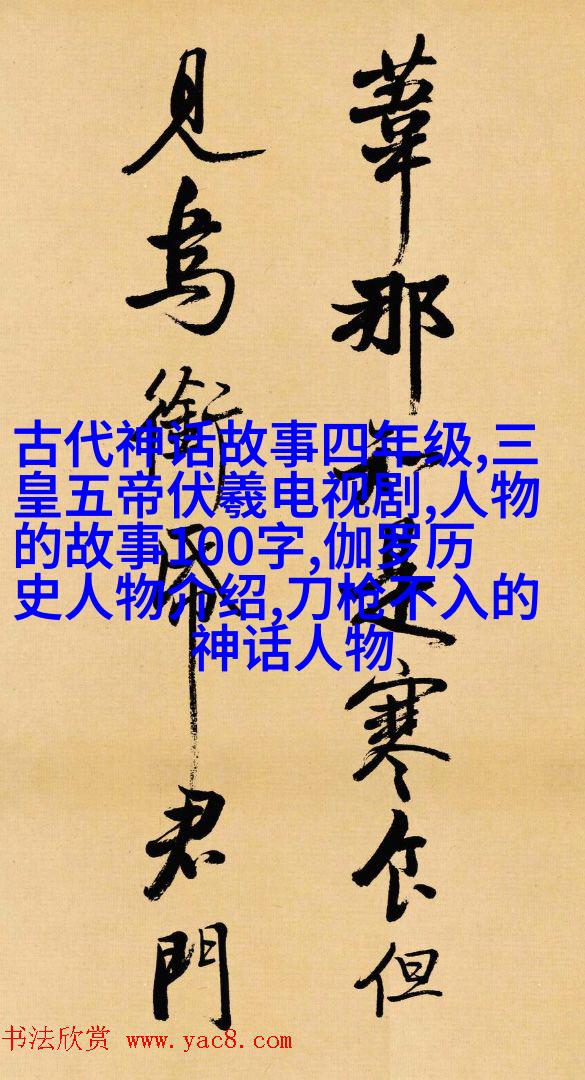 葦那知是寒食但
見烏銜帋君門
古代神话故事四年级,三
皇五帝伏羲电视剧,人物
的故事100字,伽罗历
史人物介绍,刀枪不入的
神话人物
书法欣赏 www.yac8.com